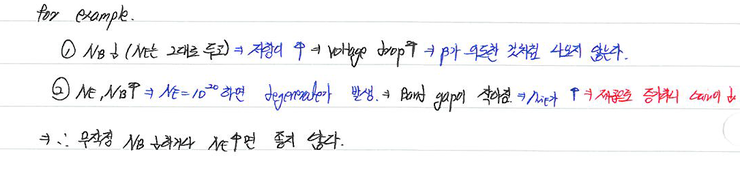 for example.
① NB↓ (NE는 그대로 두고) ⇒ 저항이 ↑ ⇒ voltage drop↑ ⇒ β가 의도한 것처럼 나오지 않는다.
② NE, NB↑ ⇒ NE=10²⁰하면 degenerate가 발생. ⇒ Band gap이 작아짐. ⇒ nie가 ↑ ⇒ 제곱으로 증가하니 Gain이
⇒ ∴ 무작정 NB↓하거나 NE↑면 좋지 않다.